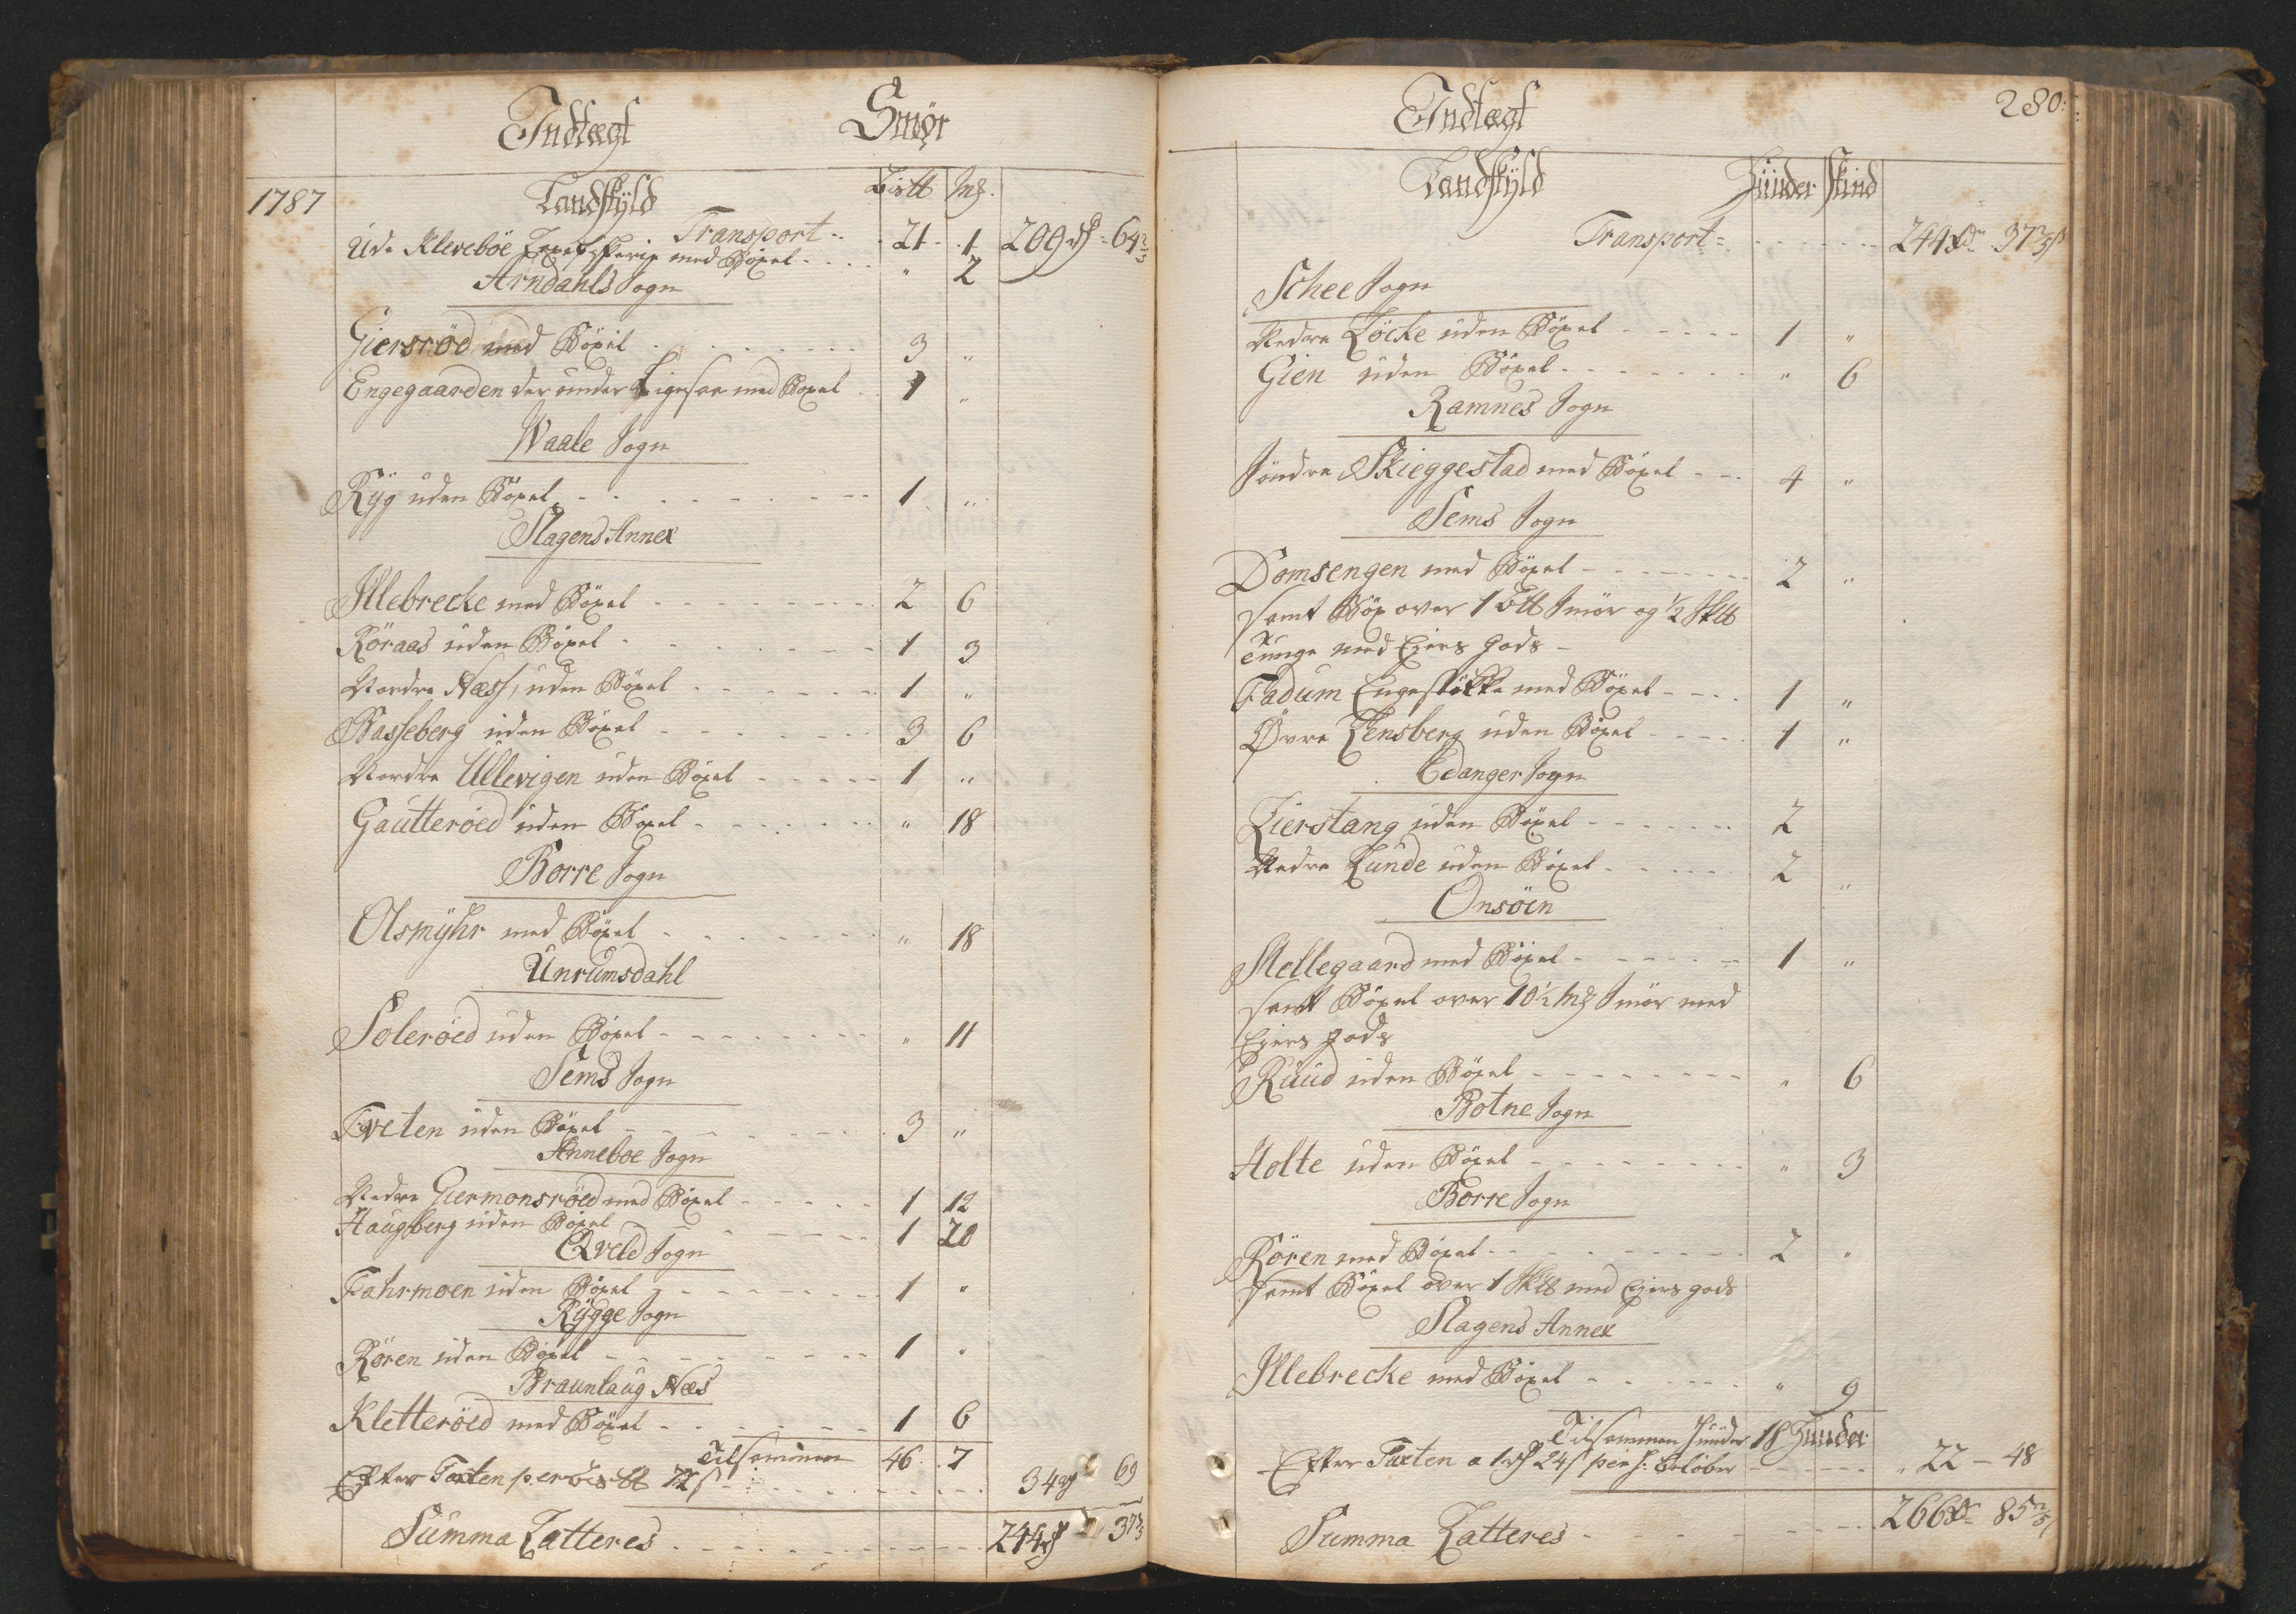 Indtægt Smør
1787 Landskÿld Bistt Mk.
Transport 21 1 209 rd 64 2/5
Ude Klevebøe med Böxel " 2
Arndahls Sogn
Giersröd med Böxel 3 "
Engegaarden der under Ligesaa med Böxel 1 "
Waale Sogn
Rÿg uden Böxel 1 "
Slagens Annex
Illebrecke med Böxel 2 6
Röraas uden Böxel 1 3
Nordre Næss, uden Böxel 1 "
Basseberg uden Böxel 3 6
Nordre Ullevigen uden Böxel 1 "
Gautteröed uden Böxel " 18
Borre Sogn
Olsmÿhr med Böxel " 18
Unrumsdahl
Soleröed uden Böxel " 11
Sems Sogn
Tveten uden Böxel 3 "
Anneboe Sogn
Nedre Giermonsröed med Böxel 1 12
Haugberg uden Böxel 1 20
Qveld Sogn
Fahrmoen uden Böxel 1 "
Rÿgge Sogn
Rören uden Böxel 1 "
Braunlaug Næs
Kletteröed med Böxel 1 6
Tilsammen 46 7
Efter Taxten per Bistt 72 s 34 rd 69
Summa Latteres 244 rd 37 2/5
280
Indtægt
Landskÿld Huuder Skind
Transport 244 rd 37 2/5 s
Schee Sogn
Nedre Löcke uden Böxel 1 "
Gien uden Böxel " 6
Ramnes Sogn
Söndre Skieggestad med Böxel 4 "
Sems Sogn
Domsengen med Böxel 2 "
samt Böx over 1 Smör og 1/2
Tunge med Eiers Gods
Fadum Engestÿkke med Böxel 1 "
Øvre Lensberg uden Böxel 1 "
Edanger Sogn
Lierstang uden Böxel 2
Nedre Lunde uden Böxel 2 "
Onsöen
Mellegaard med Böxel 1 "
samt Böxel over 10 1/2 Mk Smör med
Eiers gods
Ruud uden Böxel " 6
Botne Sogn
Holte uden Böxel " 3
Borre Sogn
Rören med Böxel 2 "
samt Böxel over 1 med Eiers gods
Slagens Annex
Illebrecke med Böxel " 9
Tilsammen Huuder 18 Huuder
Efter Taxten a 1 rd 24 s belöber 22 - 48
Summa Latteres 266 rd 85 2/5 s